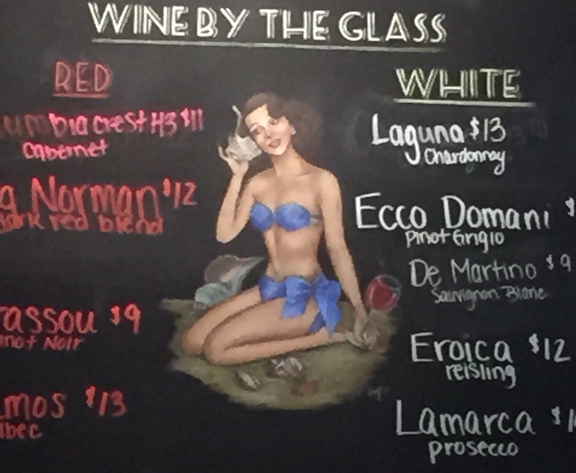 WINE BY THE GLASS
RED
umbia crest H3 $11
Cabernet
a Norman $12
dark red blend
rassou $9
inot Noir
mos $13
lbec
WHITE
Laguna $13
Chardonnay
Ecco Domani $
Pinot Grigio
De Martino $9
Sauvignon Blanc
Eroica $12
reisling
Lamarca $1
prosecco